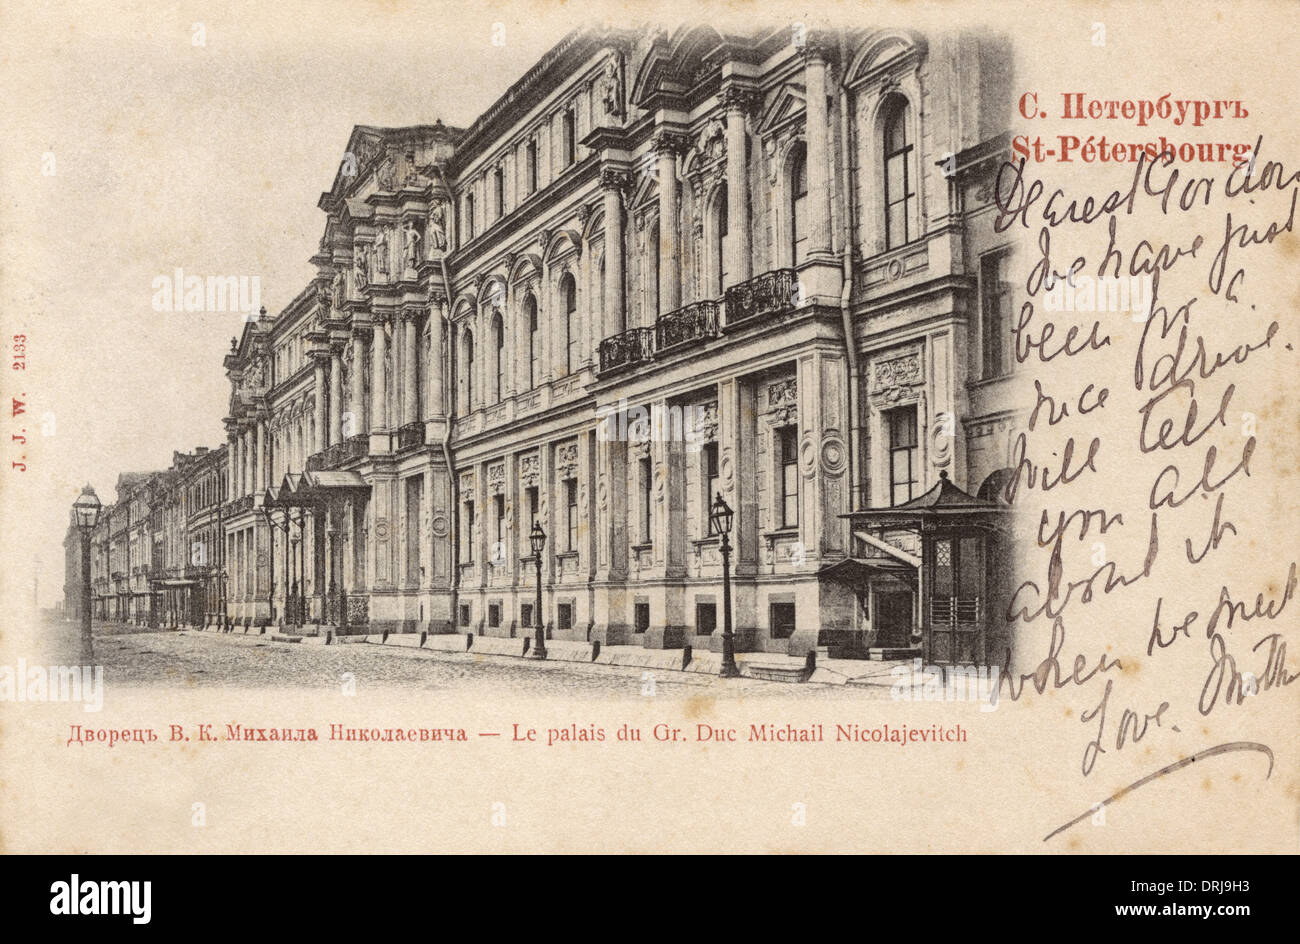 С. Петербургъ
St-Pétersbourg
Dearest Gordon
We have just
been for a
nice drive.
Will tell
you all
about it
when we meet
Love. Mother
J. J. W. 2133
Дворецъ В. К. Михаила Николаевича — Le palais du Gr. Duc Michail Nicolajevitch
a alamy stock photo
alamy
Image ID: DRJ9H3
www.alamy.com